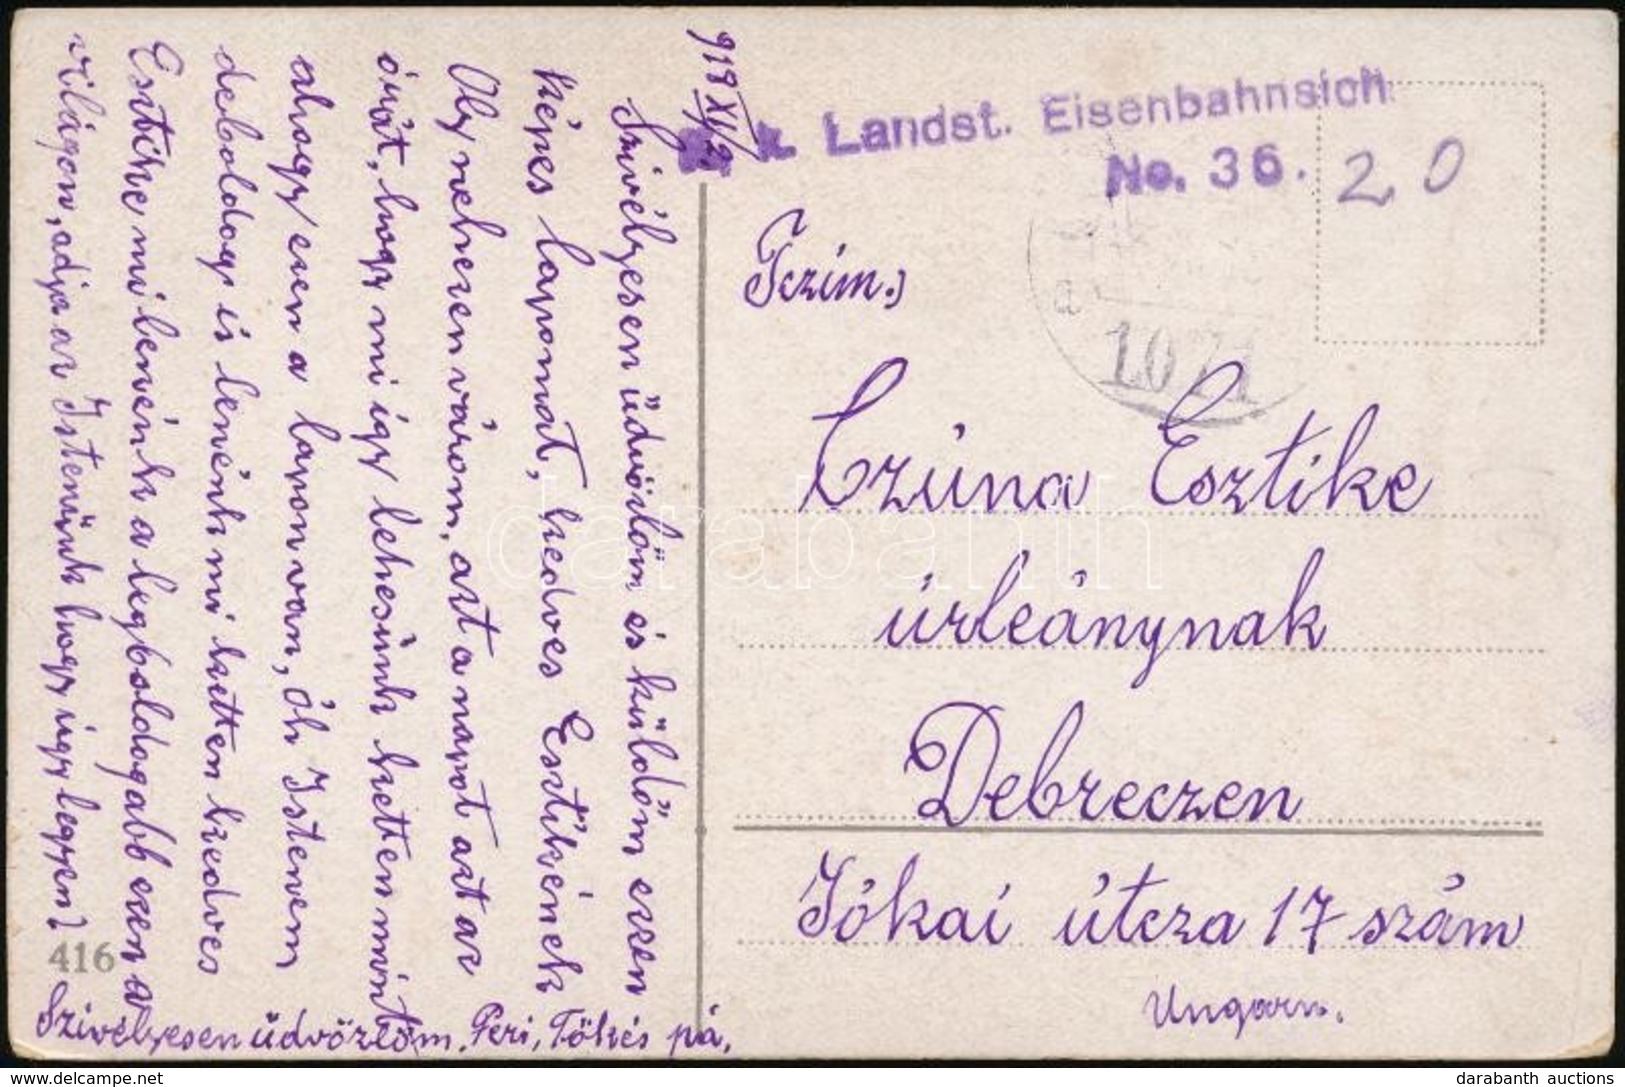 918 XI/2
Szivélyesen üdvözlöm és küldöm ezen
képes lapomat, kedves Esztikének
Oly nehezen várom, azt a napot azt az
órát, hogy mi így lehesünk ketten mint
ahogy ezen a lapon van, óh Istenem
deboldog is lenénk mi ketten kedves
Esztike mi lenénk a legboldogabb ezen a
világon, adja az Istenünk hogy úgy legyen?
416
Szivélyesen üdvözlöm. Feri, Tökés pá.
k. Landst. Eisenbahnsich
No. 36.
20
a
1071
Tczím.)
Czúna Esztike
úrleánynak
Debreczen
Jókai útcza 17 szám
Ungarn.
darabanth
darabanth auctions